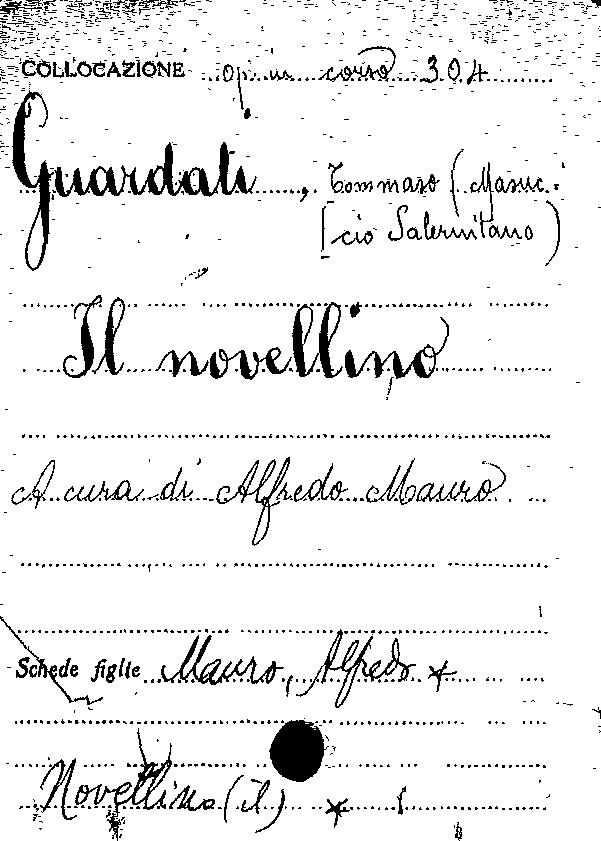 COLLOCAZIONE op. in corso 304
Guardati, Tommaso (Masuc:
[cio Salernitano)
Il novellino
A cura di Alfredo Mauro
Schede figlie Mauro, Alfredo *
Novellino (il) *